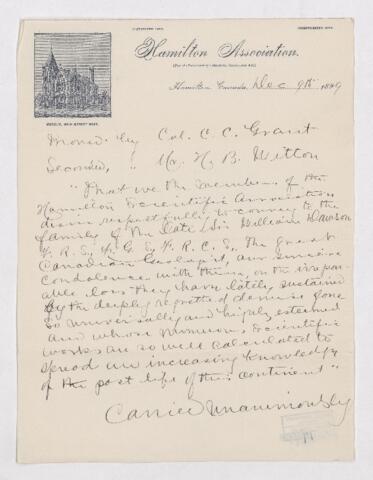 Hamilton Association.
Hamilton Canada, Dec 9th 1899
Moved by Col. C. C. Grant
Seconded, " Mr. H. B. Witton
"That we the members of the
Hamilton Scientific Association
desire respectfully to convey to the
family of the late Sir William Dawson
F. R. S., F. G. S., F. R. C. S., the great
Canadian Geologist, our sincere
condolence with them, on the irrepar-
able loss they have lately sustained
by the deeply regretted demise of one
so universally and highly esteemed
and whose numerous Scientific
works are so well calculated to
spread an increasing knowledge
of the past life of this continent"
Carried Unanimously